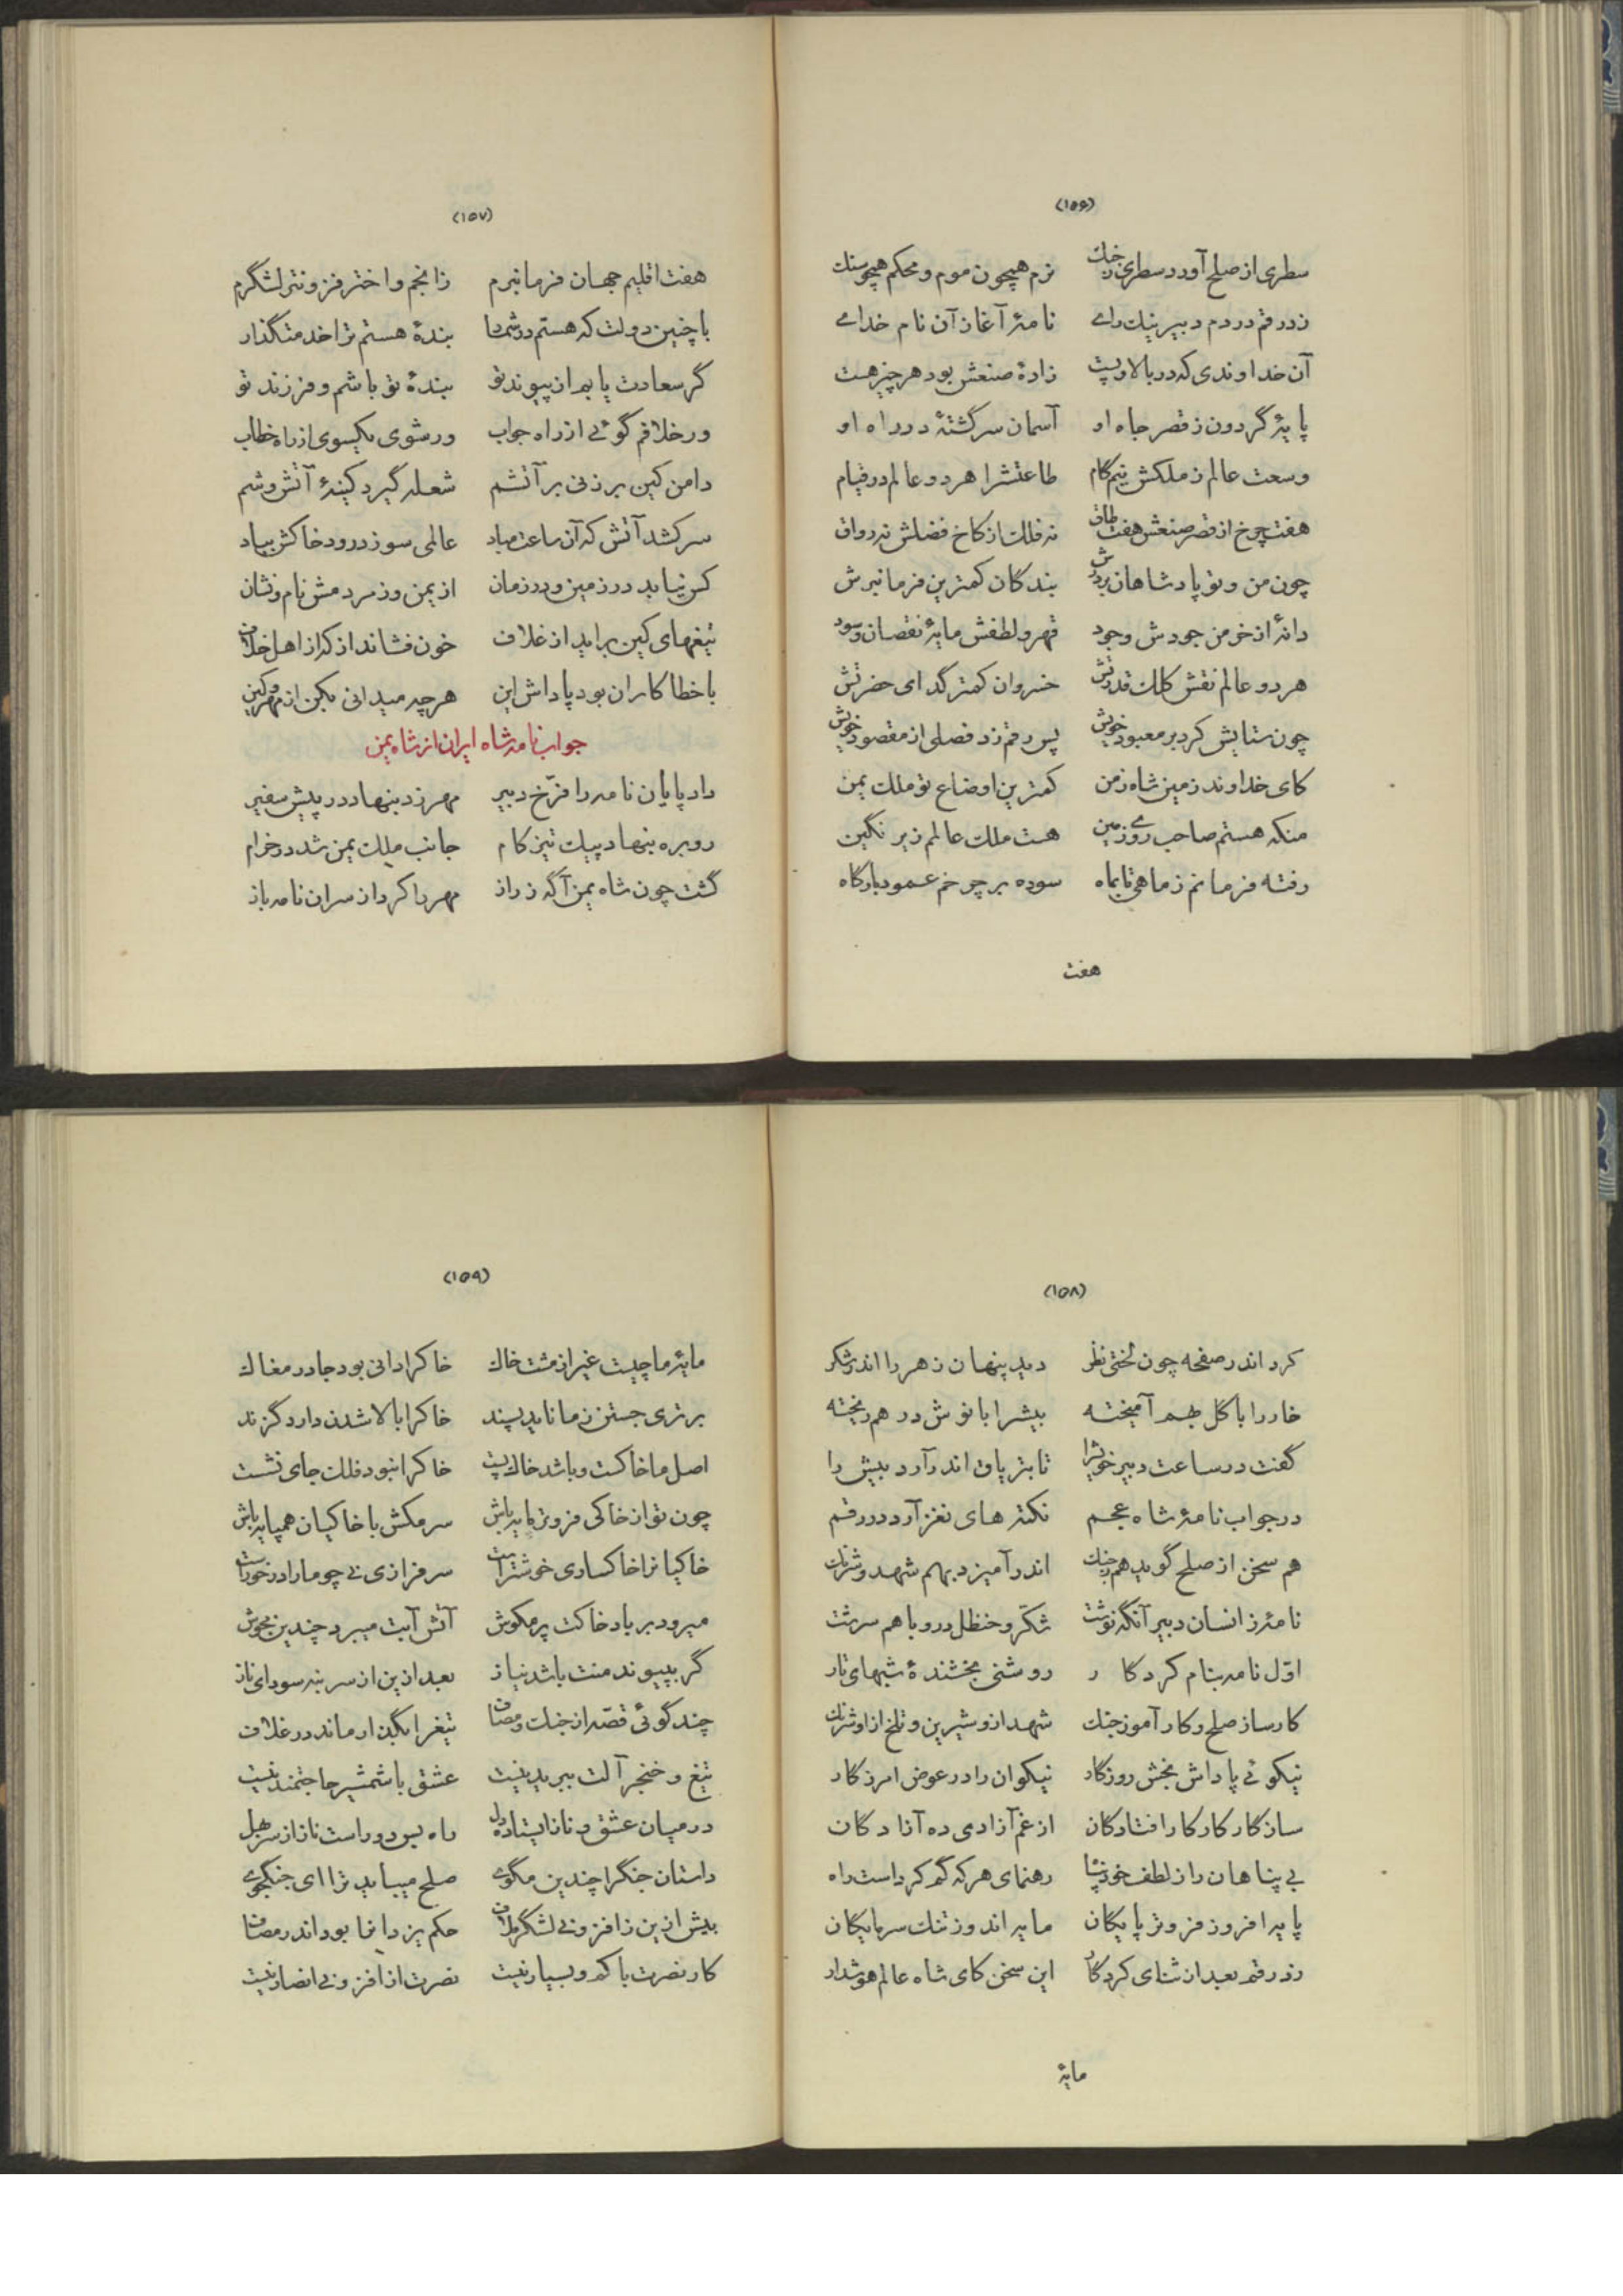 (۱۵۶)
سطری از صلح آورد سطری ز جنك نرم همچون موم و محکم همچو سنك
زد رقم در دم دبیر نیك رای نامهٔ آغاز آن نام خدای
آن خداوندی که در بالا و پست زادهٔ صنعش بود هر چیز هست
پایهٔ گردون ز قصر جاه او آسمان سرگشتهٔ در راه او
وسعت عالم ز ملکش نیم گام طاعتشرا هر دو عالم در قیام
هفت چرخ از قصر صنعش هفت طاق نه فلك از کاخ فضلش نه رواق
چون من و تو پادشاهان بر درش بندگان کمترین فرمانبرش
دانهٔ از خرمن جودش وجود قهر و لطفش مایهٔ نقصان و سود
هر دو عالم نقش کلك قدرتش خسروان کمتر گدای حضرتش
چون ستایش کرد بر معبود خویش پس رقم زد فصلی از مقصود خویش
کای خداوند زمین شاه زمن کمترین اوضاع تو ملك یمن
منکه هستم صاحب روی زمین هست ملك عالم زیر نگین
رفته فرمانم ز ماهی تا بماه سوده بر چرخم عمود بارگاه
هفت
(۱۵۷)
هفت اقلیم جهان فرمانبرم ز انجم و اختر فزونتر لشگرم
با چنین دولت که هستم در شمار بندهٔ هستم ترا خدمتگذار
گر سعادت یابم از پیوند تو بندهٔ تو باشم و فرزند تو
ور خلافم گوئی از راه جواب ور شوی یکسوی از راه خطاب
دامن کین بر زنی بر آتشم شعله گیرد کینهٔ آتش وشم
سر کشد آتش که آن ساعت مباد عالمی سوزد رود خاکش بباد
کس نیابد در زمین و در زمان از یمن وز مردمش نام و نشان
تیغهای کین براید از غلاف خون فشاند از که از اهل خلاف
با خطا کاران بود پاداش این هر چه میدانی بکن از مهر و کین
جواب نامه شاه ایران از شاه یمن
داد پایان نامه را فرّخ دبیر مهر زد بنهاد در پیش سفیر
رو بره بنهاد پیك تیز کام جانب ملك یمن شد در خرام
گشت چون شاه یمن آگه ز راز مهر را کرد از سر آن نامه باز
(۱۵۸)
کرد اندر صفحه چون لختی نظر دید پنهان زهر را اندر شکر
خار را با گل بهم آمیخته نیشرا با نوش در هم ریخته
گفت در ساعت دبیر خویشرا تا بتریاق اندر آرد نیش را
در جواب نامهٔ شاه عجم نکته های نغز آرد در رقم
هم سخن از صلح گوید هم ز جنك اندر آمیزد بهم شهد و شرنك
نامهٔ زانسان دبیر آنگه نوشت شکّر و حنظل درو با هم سرشت
اوّل نامه بنام کردگار روشنی بخشندهٔ شبهای تار
کارساز صلح و کار آموز جنك شهد ازو شیرین و تلخ از او شرنك
نیکوئی پاداش بخش روزگار نیکوان را در عوض امرزگار
سازگار کار کار افتادگان از غم آزادی ده آزادگان
بی پناهان را ز لطف خود پناه رهنمای هر که گم کرداست راه
پایه افروز فروتر پایگان مایه اندوز تنك سرمایگان
زد رقم بعد از ثنای کردگار این سخن کای شاه عالم هوشدار
مایهٔ
(۱۵۹)
مایهٔ ما چیست غیر از مشت خاك خاکرا دانی بود جا در مغاك
برتری جستن ز ما ناید پسند خاکرا بالا شدن دارد گزند
اصل ما خاکست و باشد خاك پست خاکرا نبود فلك جای نشست
چون تو از خاکی فروتر پایه باش سر مکش با خاکیان همپایه باش
خاکیانرا خاکساری خوشتر است سرفرازی نی چو ما را در خور است
میرود بر باد خاکت پر مکوش آتش آبت میبرد چندین مجوش
گر بپیوند منت باشد نیاز بعد ازین از سر بنه سودای ناز
چند گوئی قصّه از جنك و مصاف تیغرا بگذار ماند در غلاف
تیغ و خنجر آلت پیوند نیست عشق با شمشیر حاجتمند نیست
در میان عشق و ناز ایستاده دل راه پس دور است ناز از سر بهل
داستان جنگرا چندین مگوی صلح میباید ترا ای جنگجوی
بیش ازین ز افزونی لشگر ملاف حکم یزدانرا بود اندر مصاف
کار نصرت با کم و بسیار نیست نصرت از افزونی انصار نیست